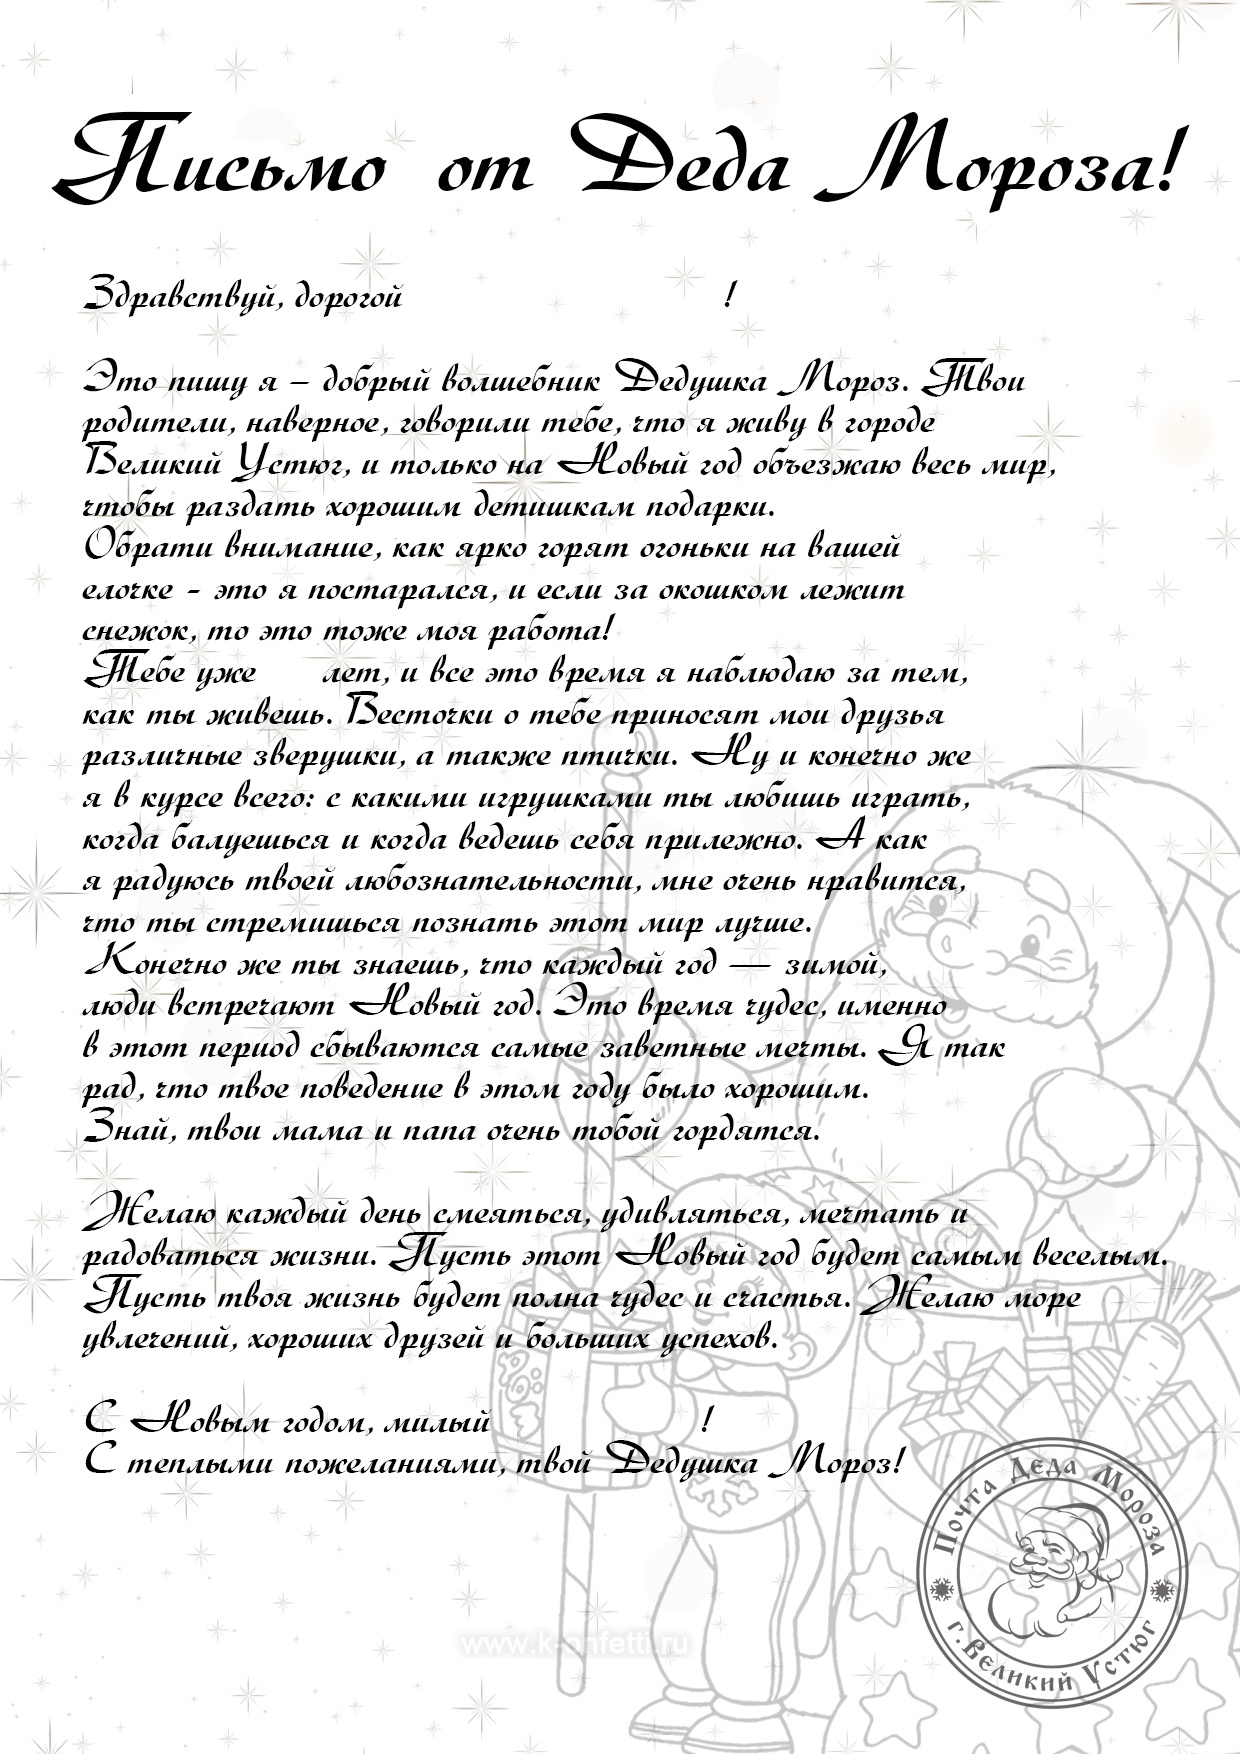 Письмо от Деда Мороза!
Здравствуй, дорогой !
Это пишу я – добрый волшебник Дедушка Мороз. Твои
родители, наверное, говорили тебе, что я живу в городе
Великий Устюг, и только на Новый год объезжаю весь мир,
чтобы раздать хорошим детишкам подарки.
Обрати внимание, как ярко горят огоньки на вашей
елочке - это я постарался, и если за окошком лежит
снежок, то это тоже моя работа!
Тебе уже лет, и все это время я наблюдаю за тем,
как ты живешь. Весточки о тебе приносят мои друзья
различные зверушки, а также птички. Ну и конечно же
я в курсе всего: с какими игрушками ты любишь играть,
когда балуешься и когда ведешь себя прилежно. А как
я радуюсь твоей любознательности, мне очень нравится,
что ты стремишься познать этот мир лучше.
Конечно же ты знаешь, что каждый год — зимой,
люди встречают Новый год. Это время чудес, именно
в этот период сбываются самые заветные мечты. Я так
рад, что твое поведение в этом году было хорошим.
Знай, твои мама и папа очень тобой гордятся.
Желаю каждый день смеяться, удивляться, мечтать и
радоваться жизни. Пусть этот Новый год будет самым веселым.
Пусть твоя жизнь будет полна чудес и счастья. Желаю море
увлечений, хороших друзей и больших успехов.
С Новым годом, милый !
С теплыми пожеланиями, твой Дедушка Мороз!
Почта Деда Мороза
г. Великий Устюг
www.k-onfetti.ru